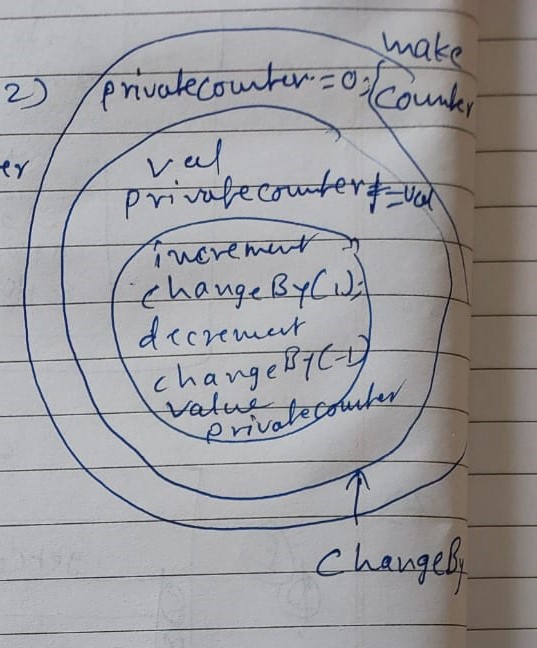 make
2) privatecounter = 0; counter
er
val
privatecounter += val
increment
changeBy(1);
decrement
changeBy(-1)
value
privatecounter
changeBy